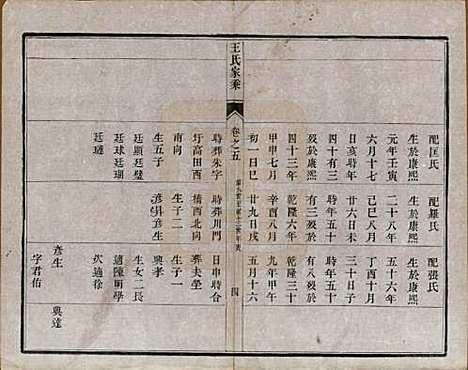 配匡氏
生於康熙
元年壬寅
六月十七
日亥時年
四十有三
歿於康熙
四十三年
甲申七月
初一日巳
配羅氏
生於康熙
二十八年
己巳八月
廿六日未
時年五十
有三歿於
乾隆六年
辛酉八月
廿九日戌
配張氏
生於康熙
五十六年
丁酉十月
三十日子
時年五十
有八歿於
乾隆三十
九年甲午
五月十六
王氏家乘
卷之五
四
時葬朱字
圩高田西
南向
生五子
廷顯廷璧
廷球廷瑚
廷璉
時葬川門
橋西北向
生子二
彥昇彥生
日申時合
葬夫塋
生子一
興孝
生女二長
適陳明學
次適徐
彥生
字君佑
興達